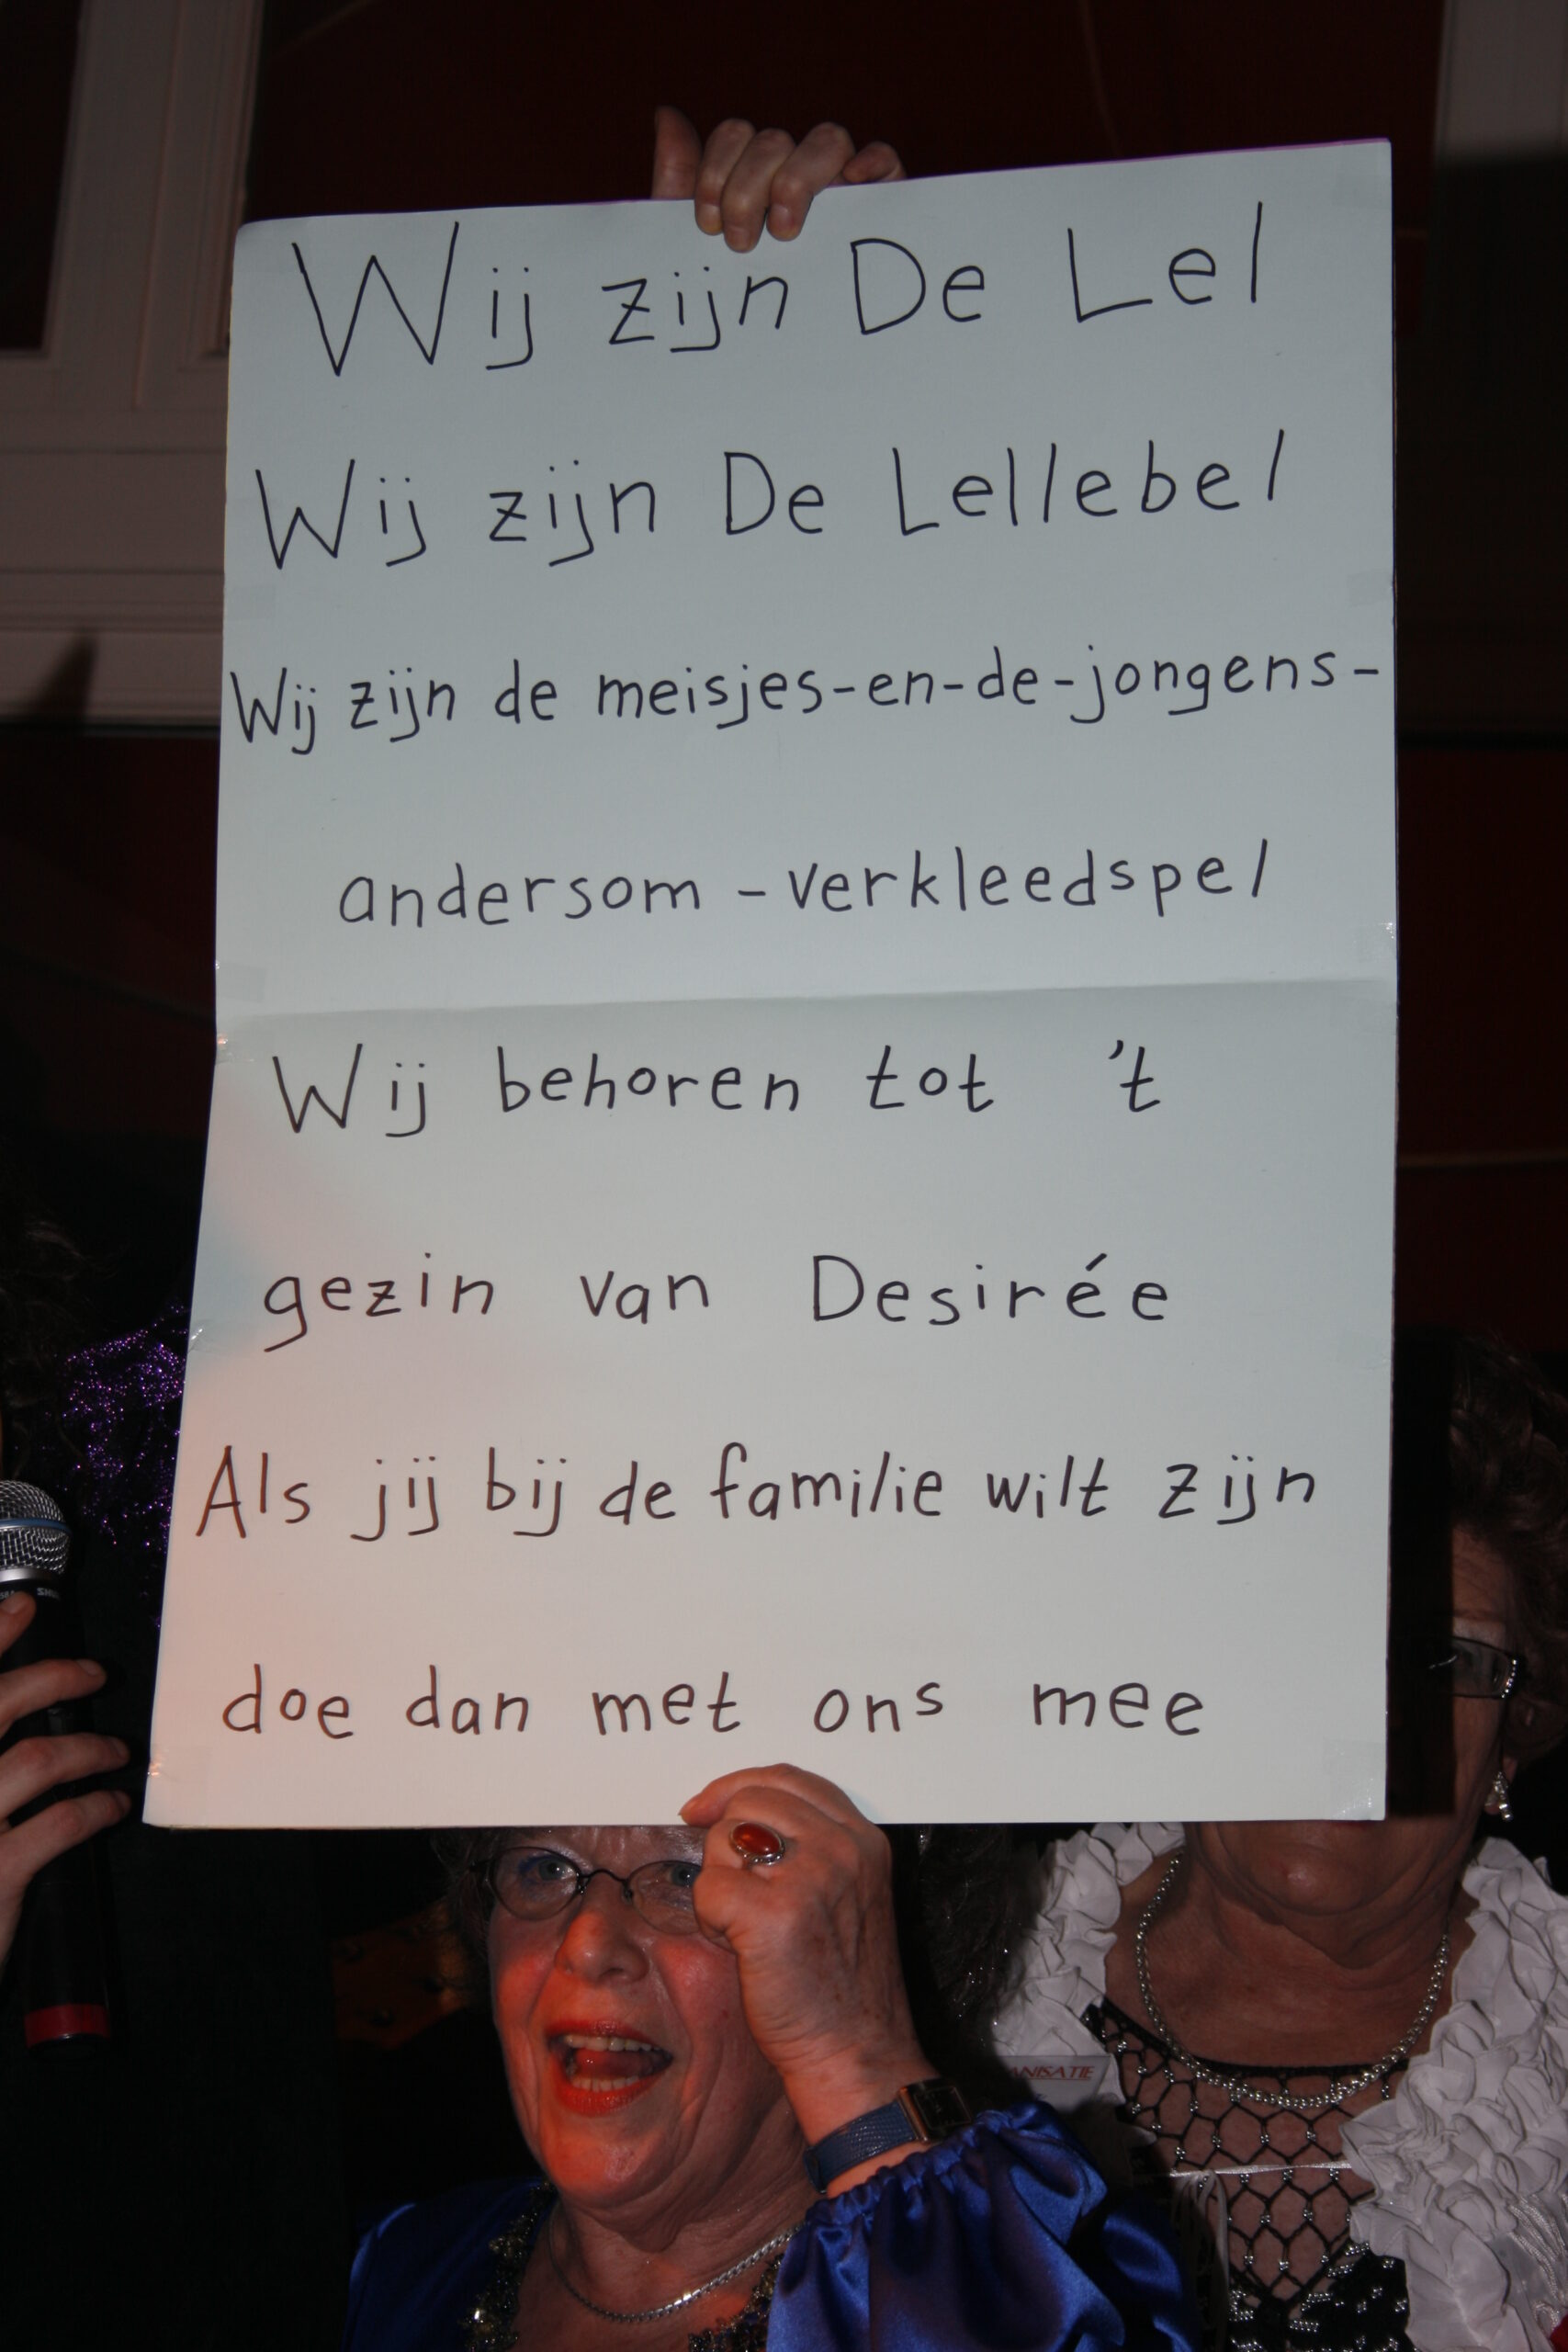 Wij zijn De Lel
Wij zijn De Lellebel
Wij zijn de meisjes-en-de-jongens-
andersom-verkleedspel
Wij behoren tot 't
gezin van Desirée
Als jij bij de familie wilt zijn
doe dan met ons mee
ANISATIE